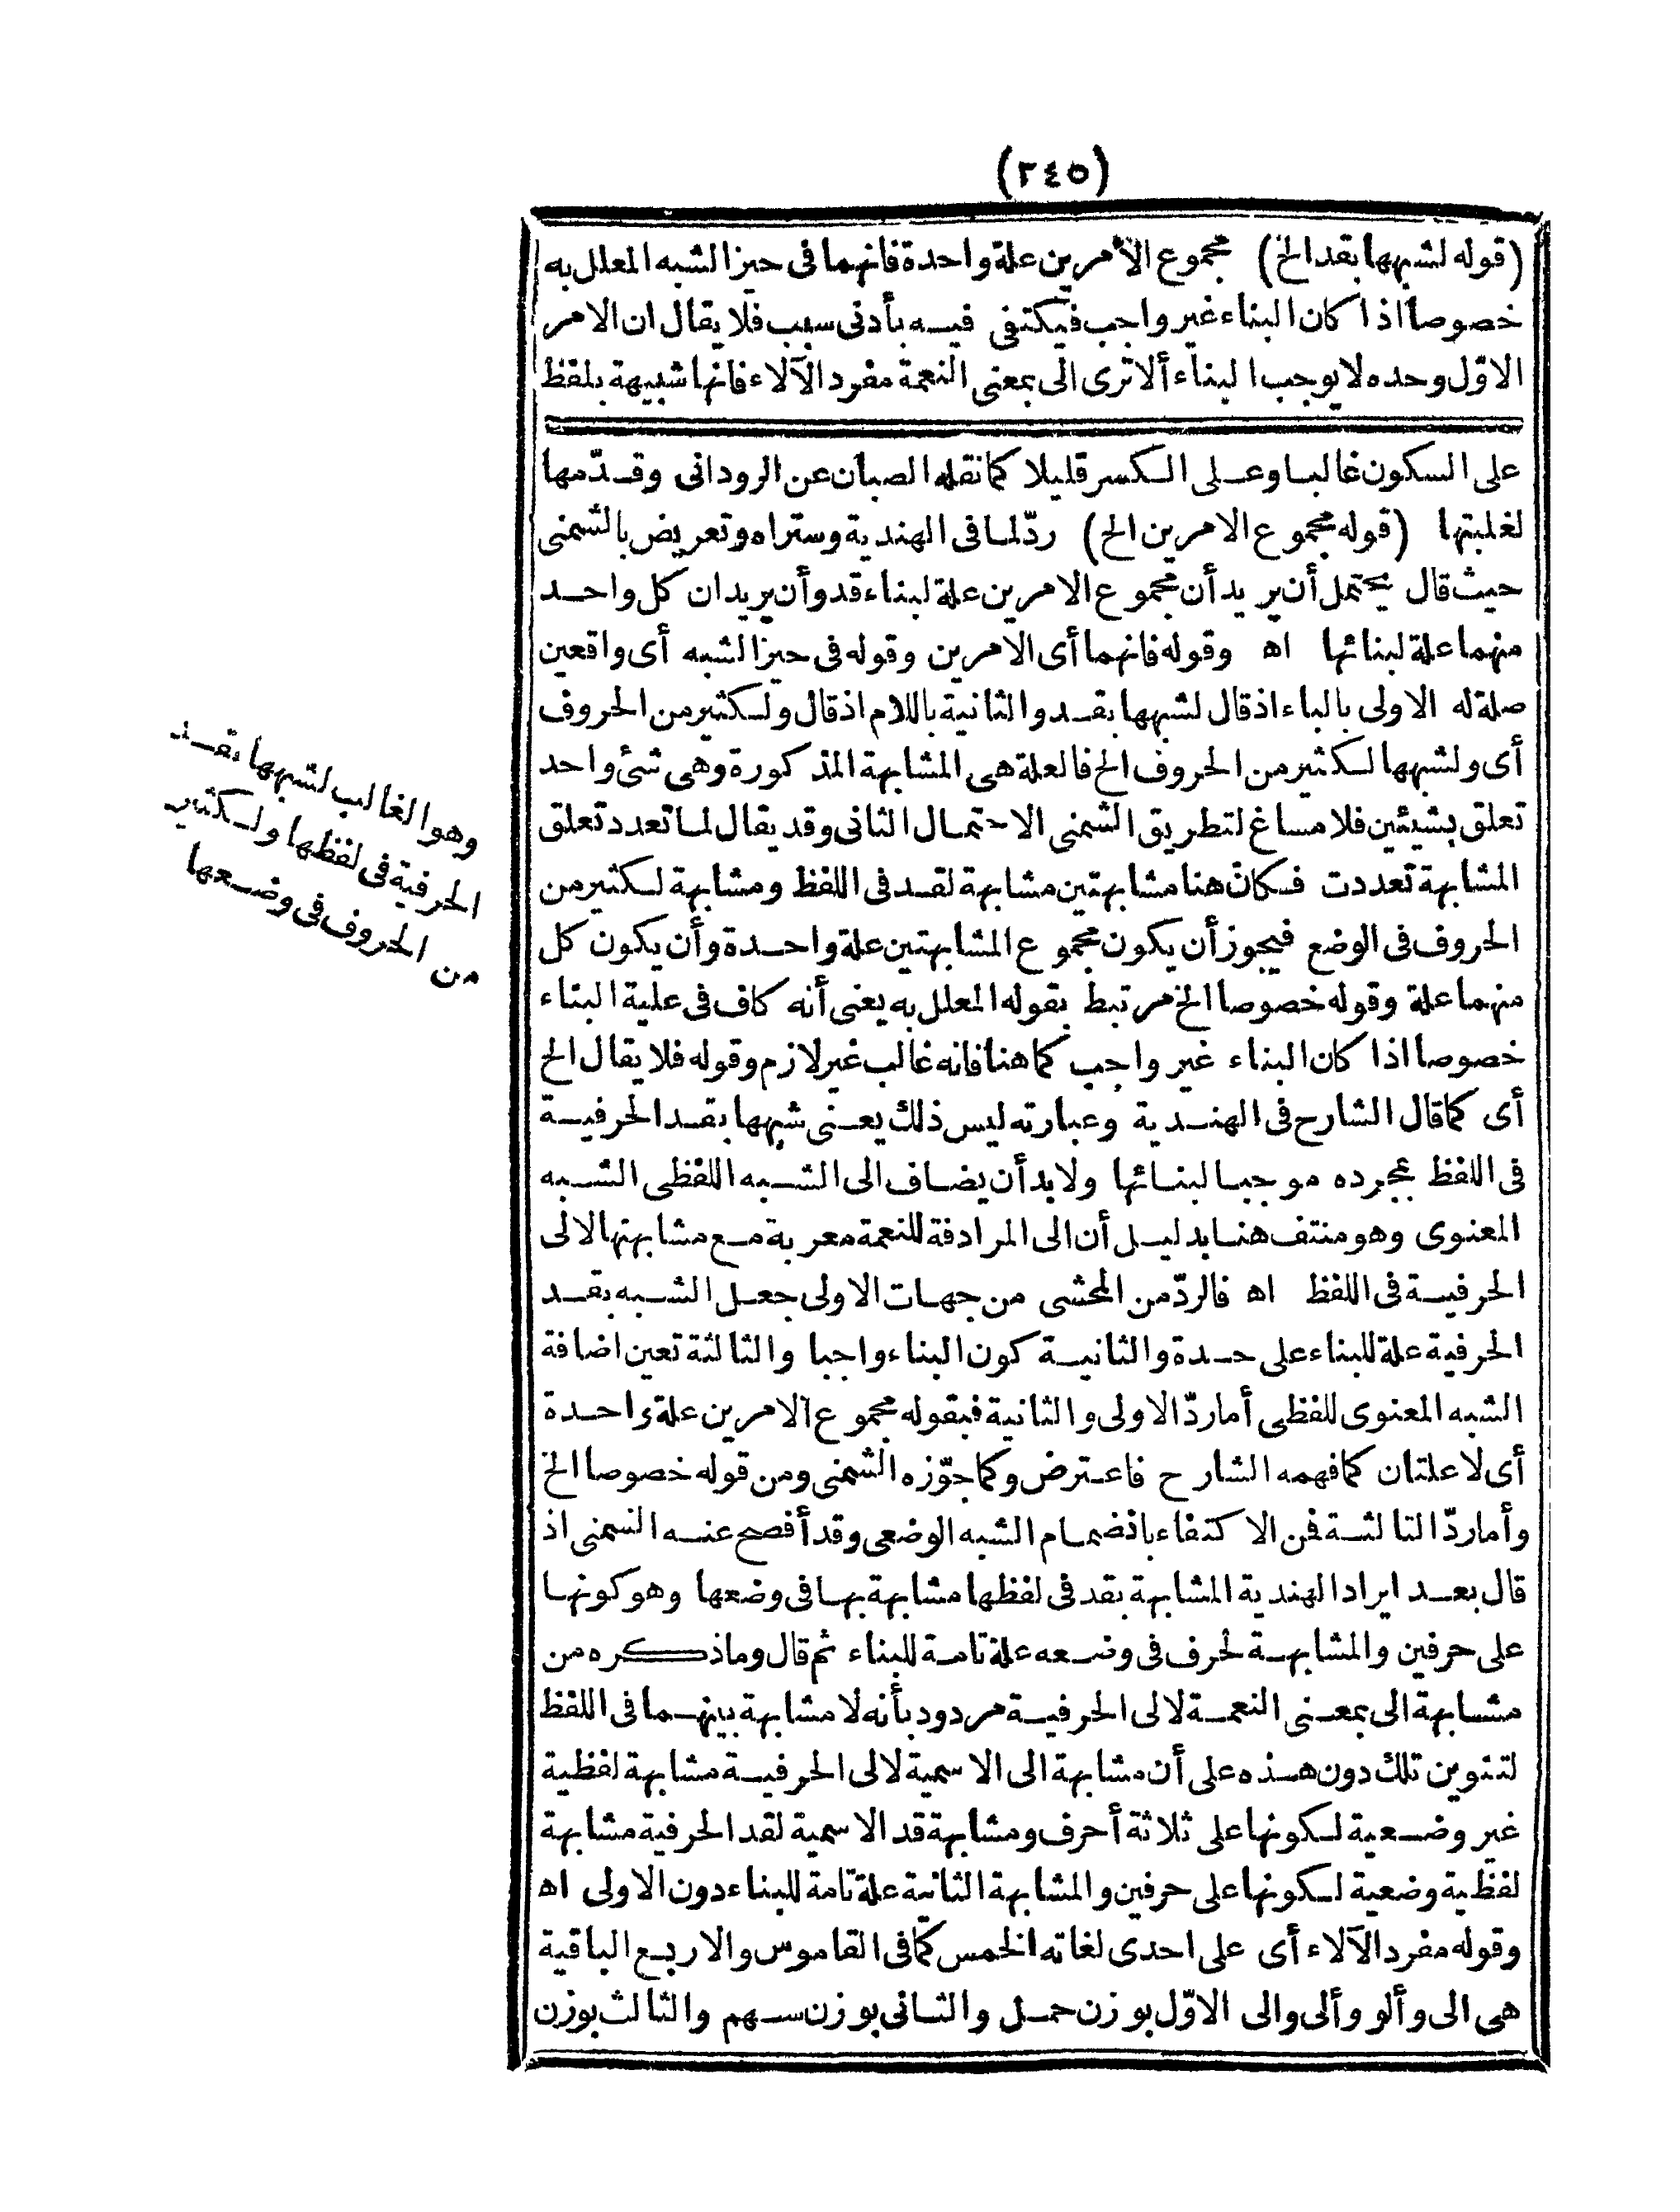 (٢٤٥)
(قوله لشبهها بقد الخ) مجموع الأمرين علة واحدة فانهما فى حيز الشبه المعلل به
خصوصا اذا كان البناء غير واجب فيكتفى فيه بأدنى سبب فلا يقال ان الامر
الاوّل وحده لا يوجب البناء ألا ترى الى بمعنى النعمة مفرد الآلاء فانها شبيهة بلفظ
على السكون غالبا وعلى الكسر قليلا كما نقله الصبان عن الرودانى وقدّمها
لغلبتها (قوله مجموع الامرين الخ) ردّ لما فى الهندية وستراه وتعريض بالشمنى
حيث قال يحتمل أن يريد أن مجموع الامرين علة لبناء قد وأن يريد ان كل واحد
منهما علة لبنائها اه وقوله فانهما أى الامرين وقوله فى حيز الشبه أى واقعين
صلة له الاولى بالباء اذ قال لشبهها بقد والثانية باللام اذ قال ولكثير من الحروف
أى ولشبهها لكثير من الحروف الخ فالعلة هى المشابهة المذكورة وهى شئ واحد
تعلق بشيئين فلا مساغ لتطريق الشمنى الاحتمال الثانى وقد يقال لما تعدد تعلق
المشابهة تعددت فكان هنا مشابهتين مشابهة لقد فى اللفظ ومشابهة لكثير من
الحروف فى الوضع فيجوز أن يكون مجموع المشابهتين علة واحدة وأن يكون كل
منهما علة وقوله خصوصا الخ مرتبط بقوله المعلل به يعنى أنه كاف فى علية البناء
خصوصا اذا كان البناء غير واجب كما هنا فانه غالب غير لازم وقوله فلا يقال الخ
أى كما قال الشارح فى الهندية وعبارته ليس ذلك يعنى شبهها بقد الحرفية
فى اللفظ بمجرده موجبا لبنائها ولا بد أن يضاف الى الشبه اللفظى الشبه
المعنوى وهو منتف هنا بدليل أن الى المرادفة للنعمة معربة مع مشابهتها الالى
الحرفية فى اللفظ اه فالردّ من المحشى من جهات الاولى جعل الشبه بقد
الحرفية علة للبناء على حدة والثانية كون البناء واجبا والثالثة تعين اضافة
الشبه المعنوى للفظى أما ردّ الاولى والثانية فبقوله مجموع الامرين علة واحدة
أى لا علتان كما فهمه الشارح فاعترض وكما جوّزه الشمنى ومن قوله خصوصا الخ
وأما ردّ الثالثة فمن الاكتفاء بانضمام الشبه الوضعى وقد أفصح عنه الشمنى اذ
قال بعد ايراد الهندية المشابهة بقد فى لفظها مشابهة بها فى وضعها وهو كونها
على حرفين والمشابهة لحرف فى وضعه علة تامة للبناء ثم قال وما ذكره من
مشابهة الى بمعنى النعمة لالى الحرفية مردود بأنه لا مشابهة بينهما فى اللفظ
لتنوين تلك دون هذه على أن مشابهة الى الاسمية لالى الحرفية مشابهة لفظية
غير وضعية لكونها على ثلاثة أحرف ومشابهة قد الاسمية لقد الحرفية مشابهة
لفظية وضعية لكونها على حرفين والمشابهة الثانية علة تامة للبناء دون الاولى اه
وقوله مفرد الآلاء أى على احدى لغاته الخمس كما فى القاموس والاربع الباقية
هى الى وألو وألى والى الاوّل بوزن حمل والثانى بوزن سهم والثالث بوزن
وهو الغالب لشبهها بقد
الحرفية فى لفظها ولكثير
من الحروف فى وضعها